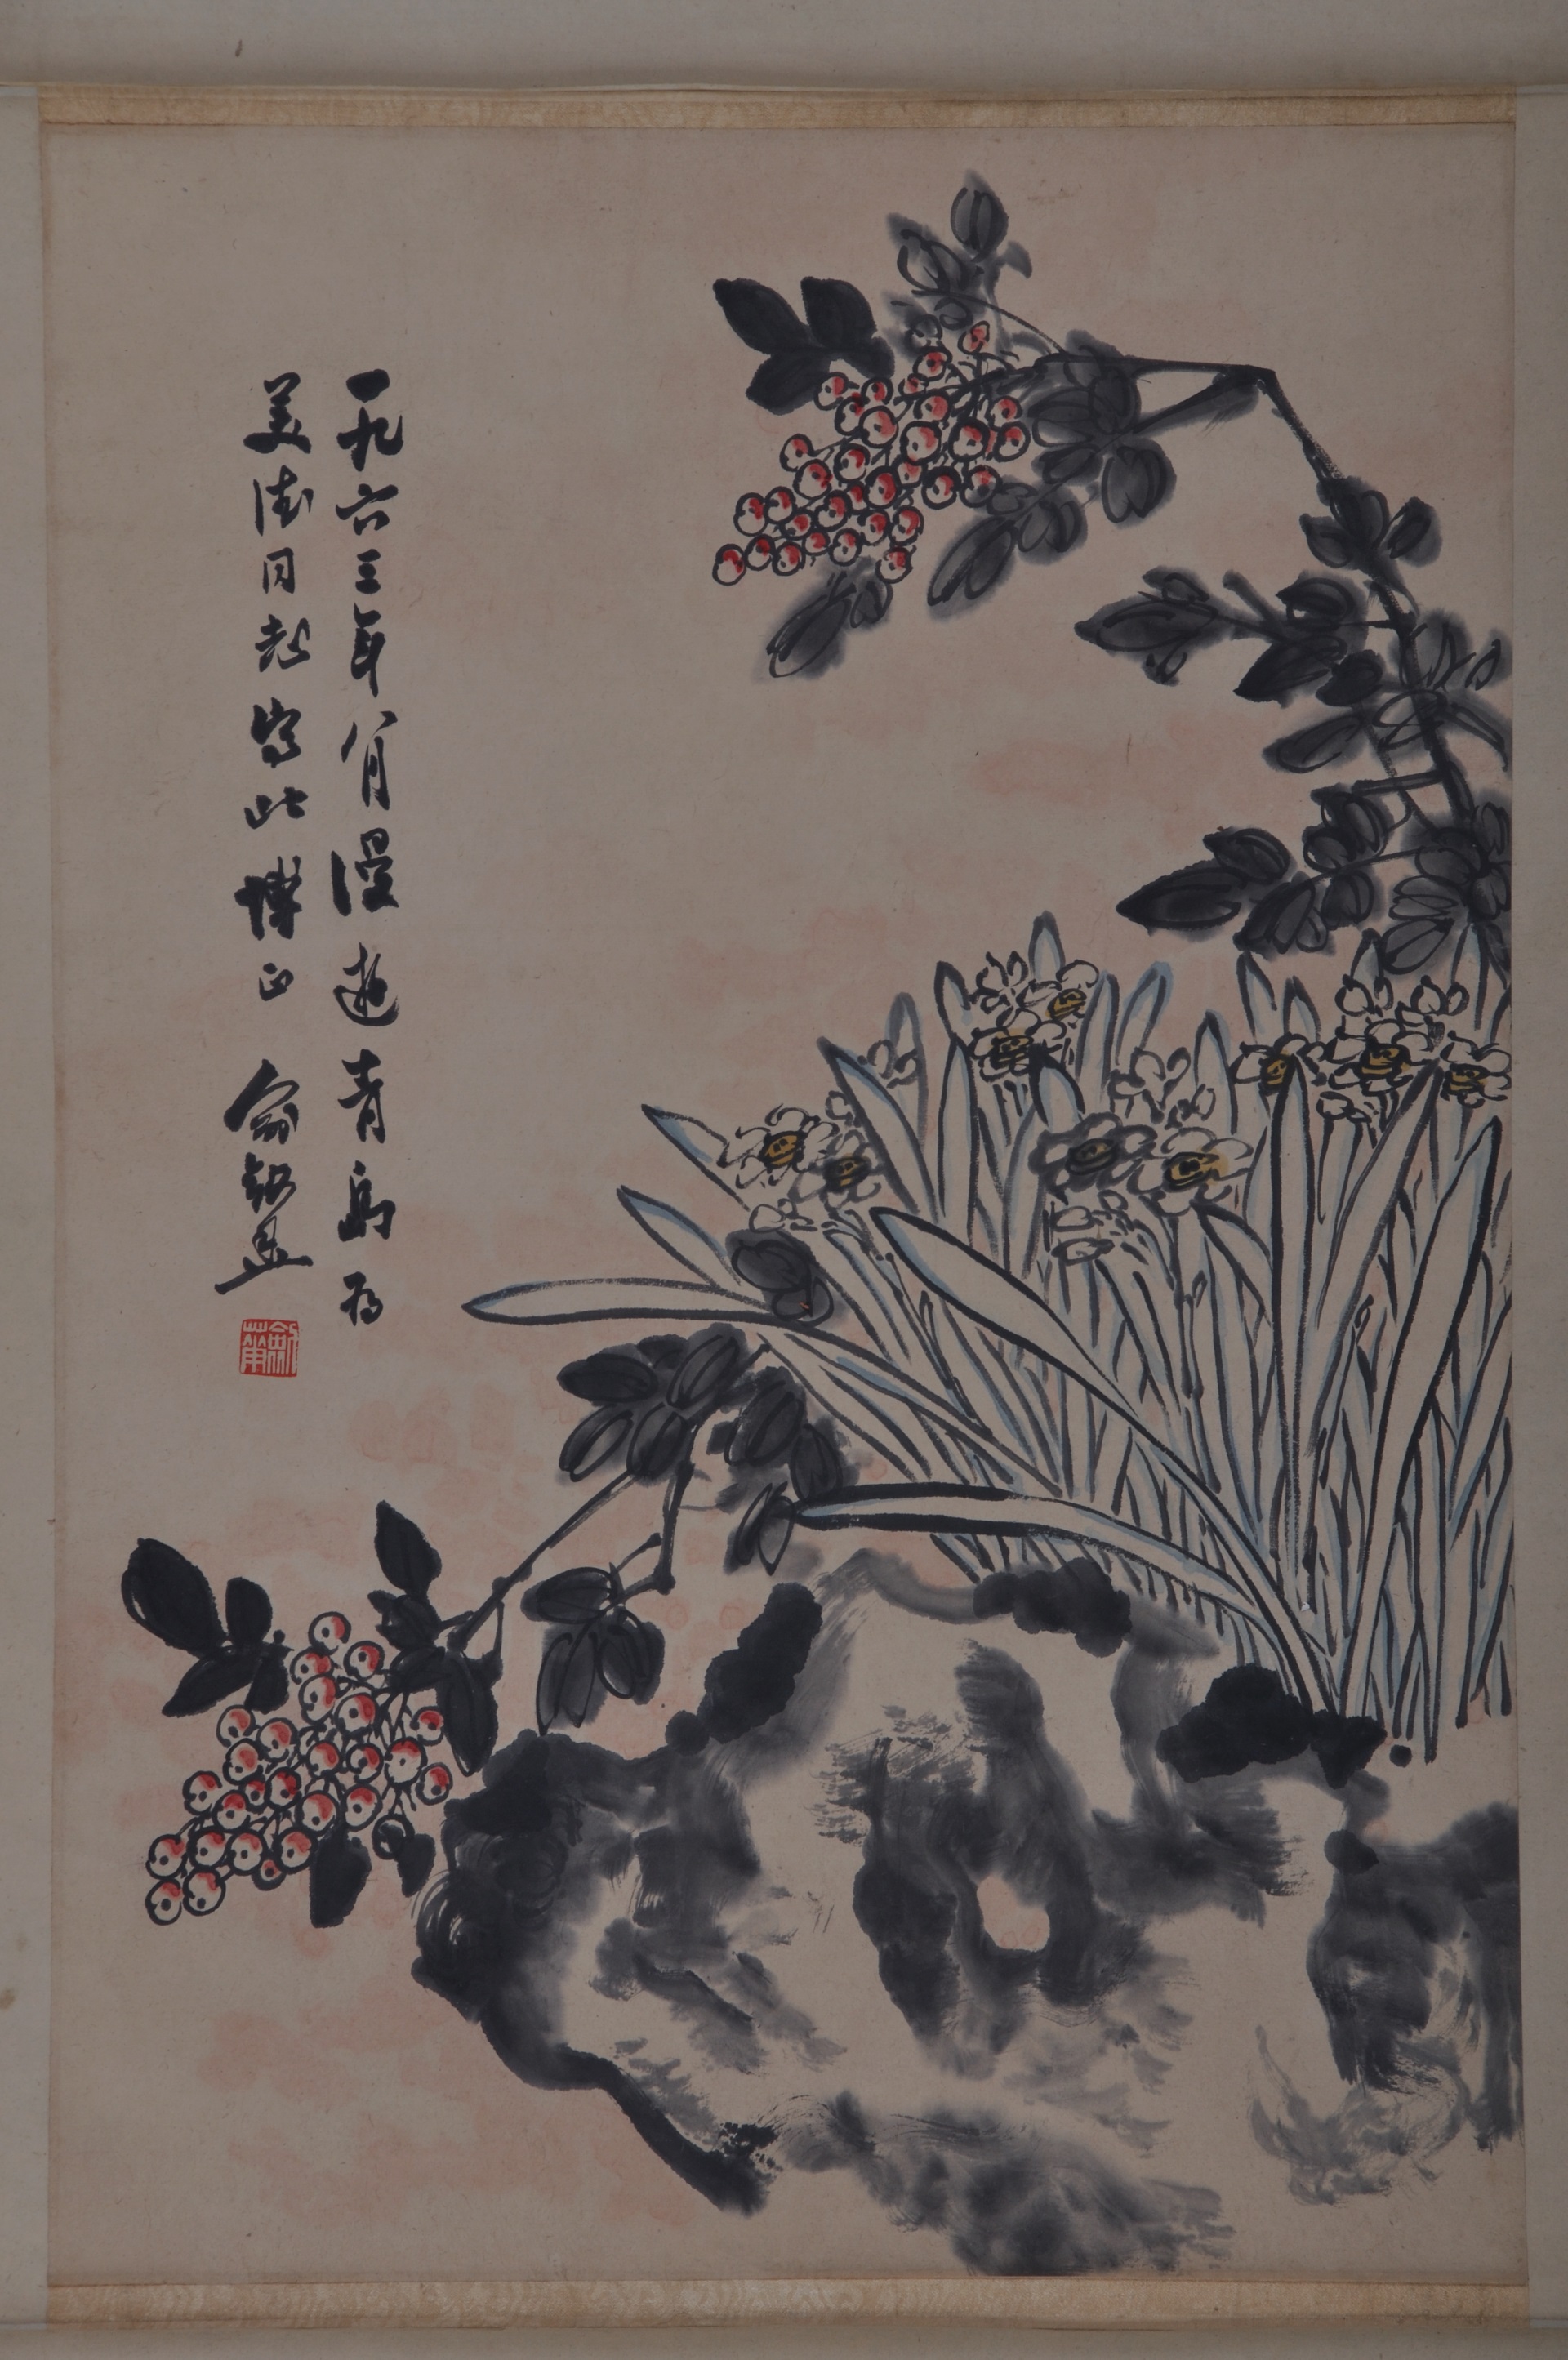 一九六三年八月漫遊青島為
美法同志寫此博正 俞劍華
劍華